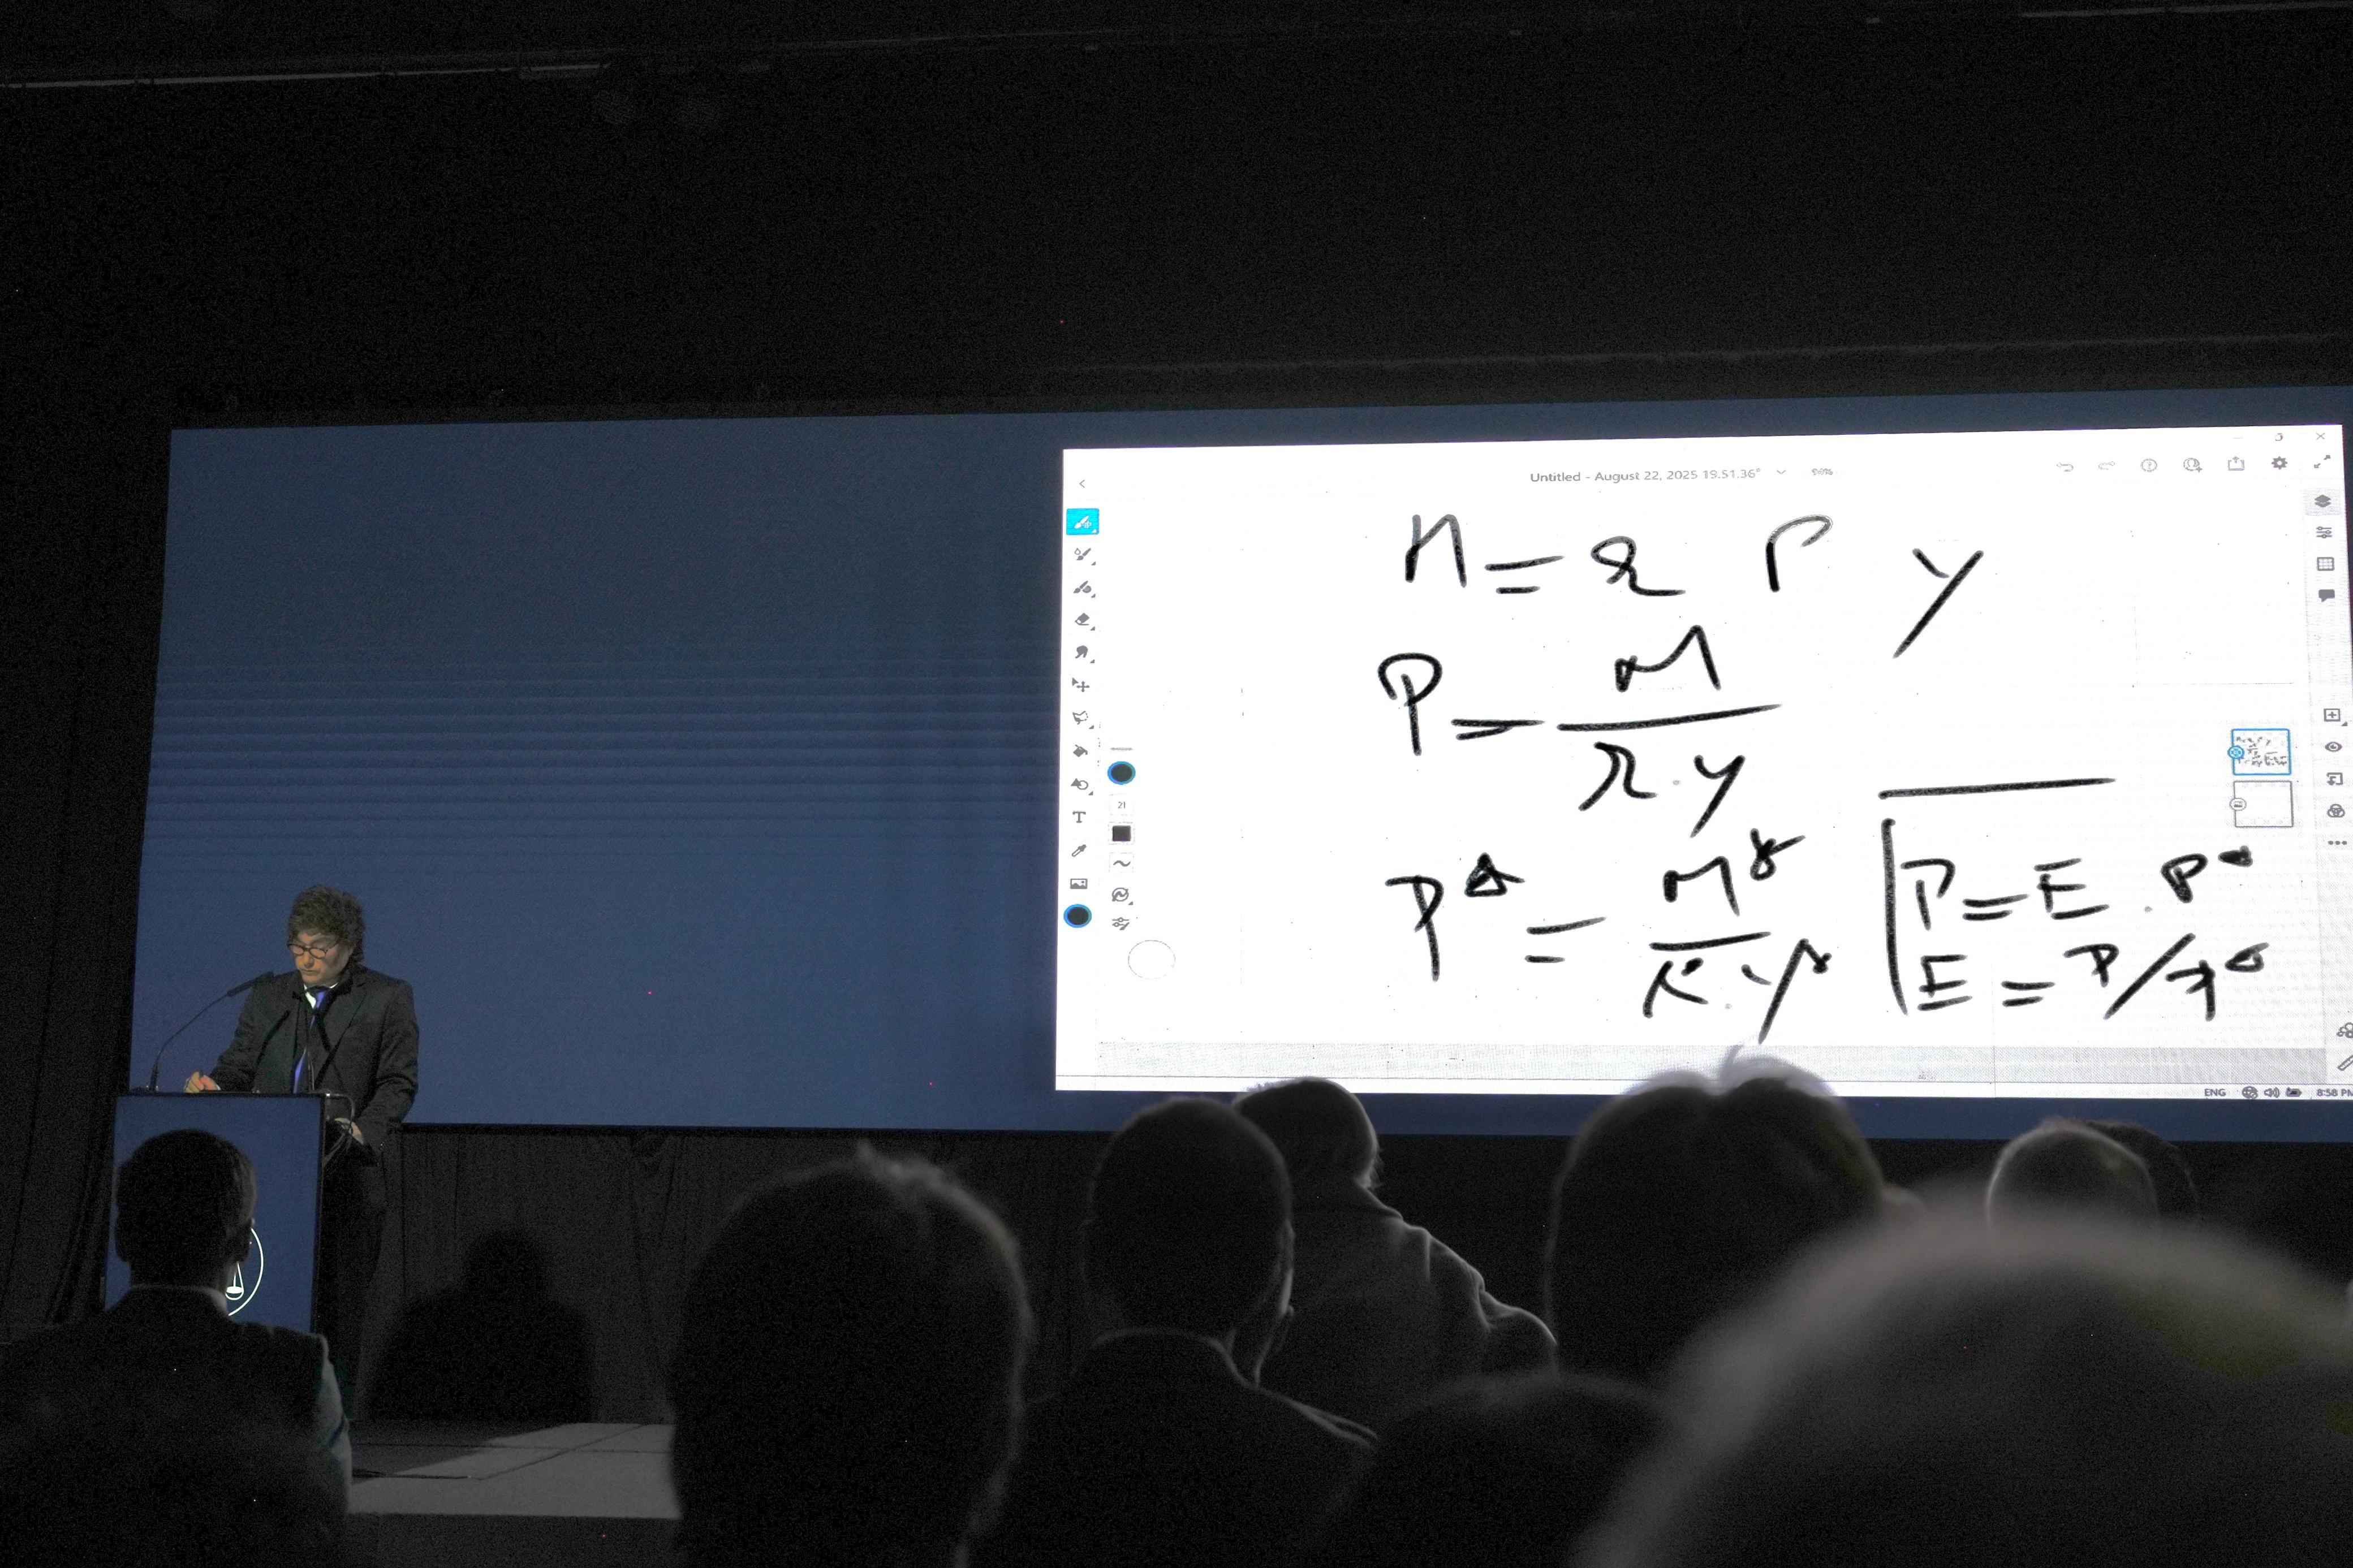 Untitled - August 22, 2025 19.51.36
T
21
M = R P Y
P = M / R.Y
P* = M* / K*.Y*
P = E . P*
E = P/P*
ENG 8:58 PM